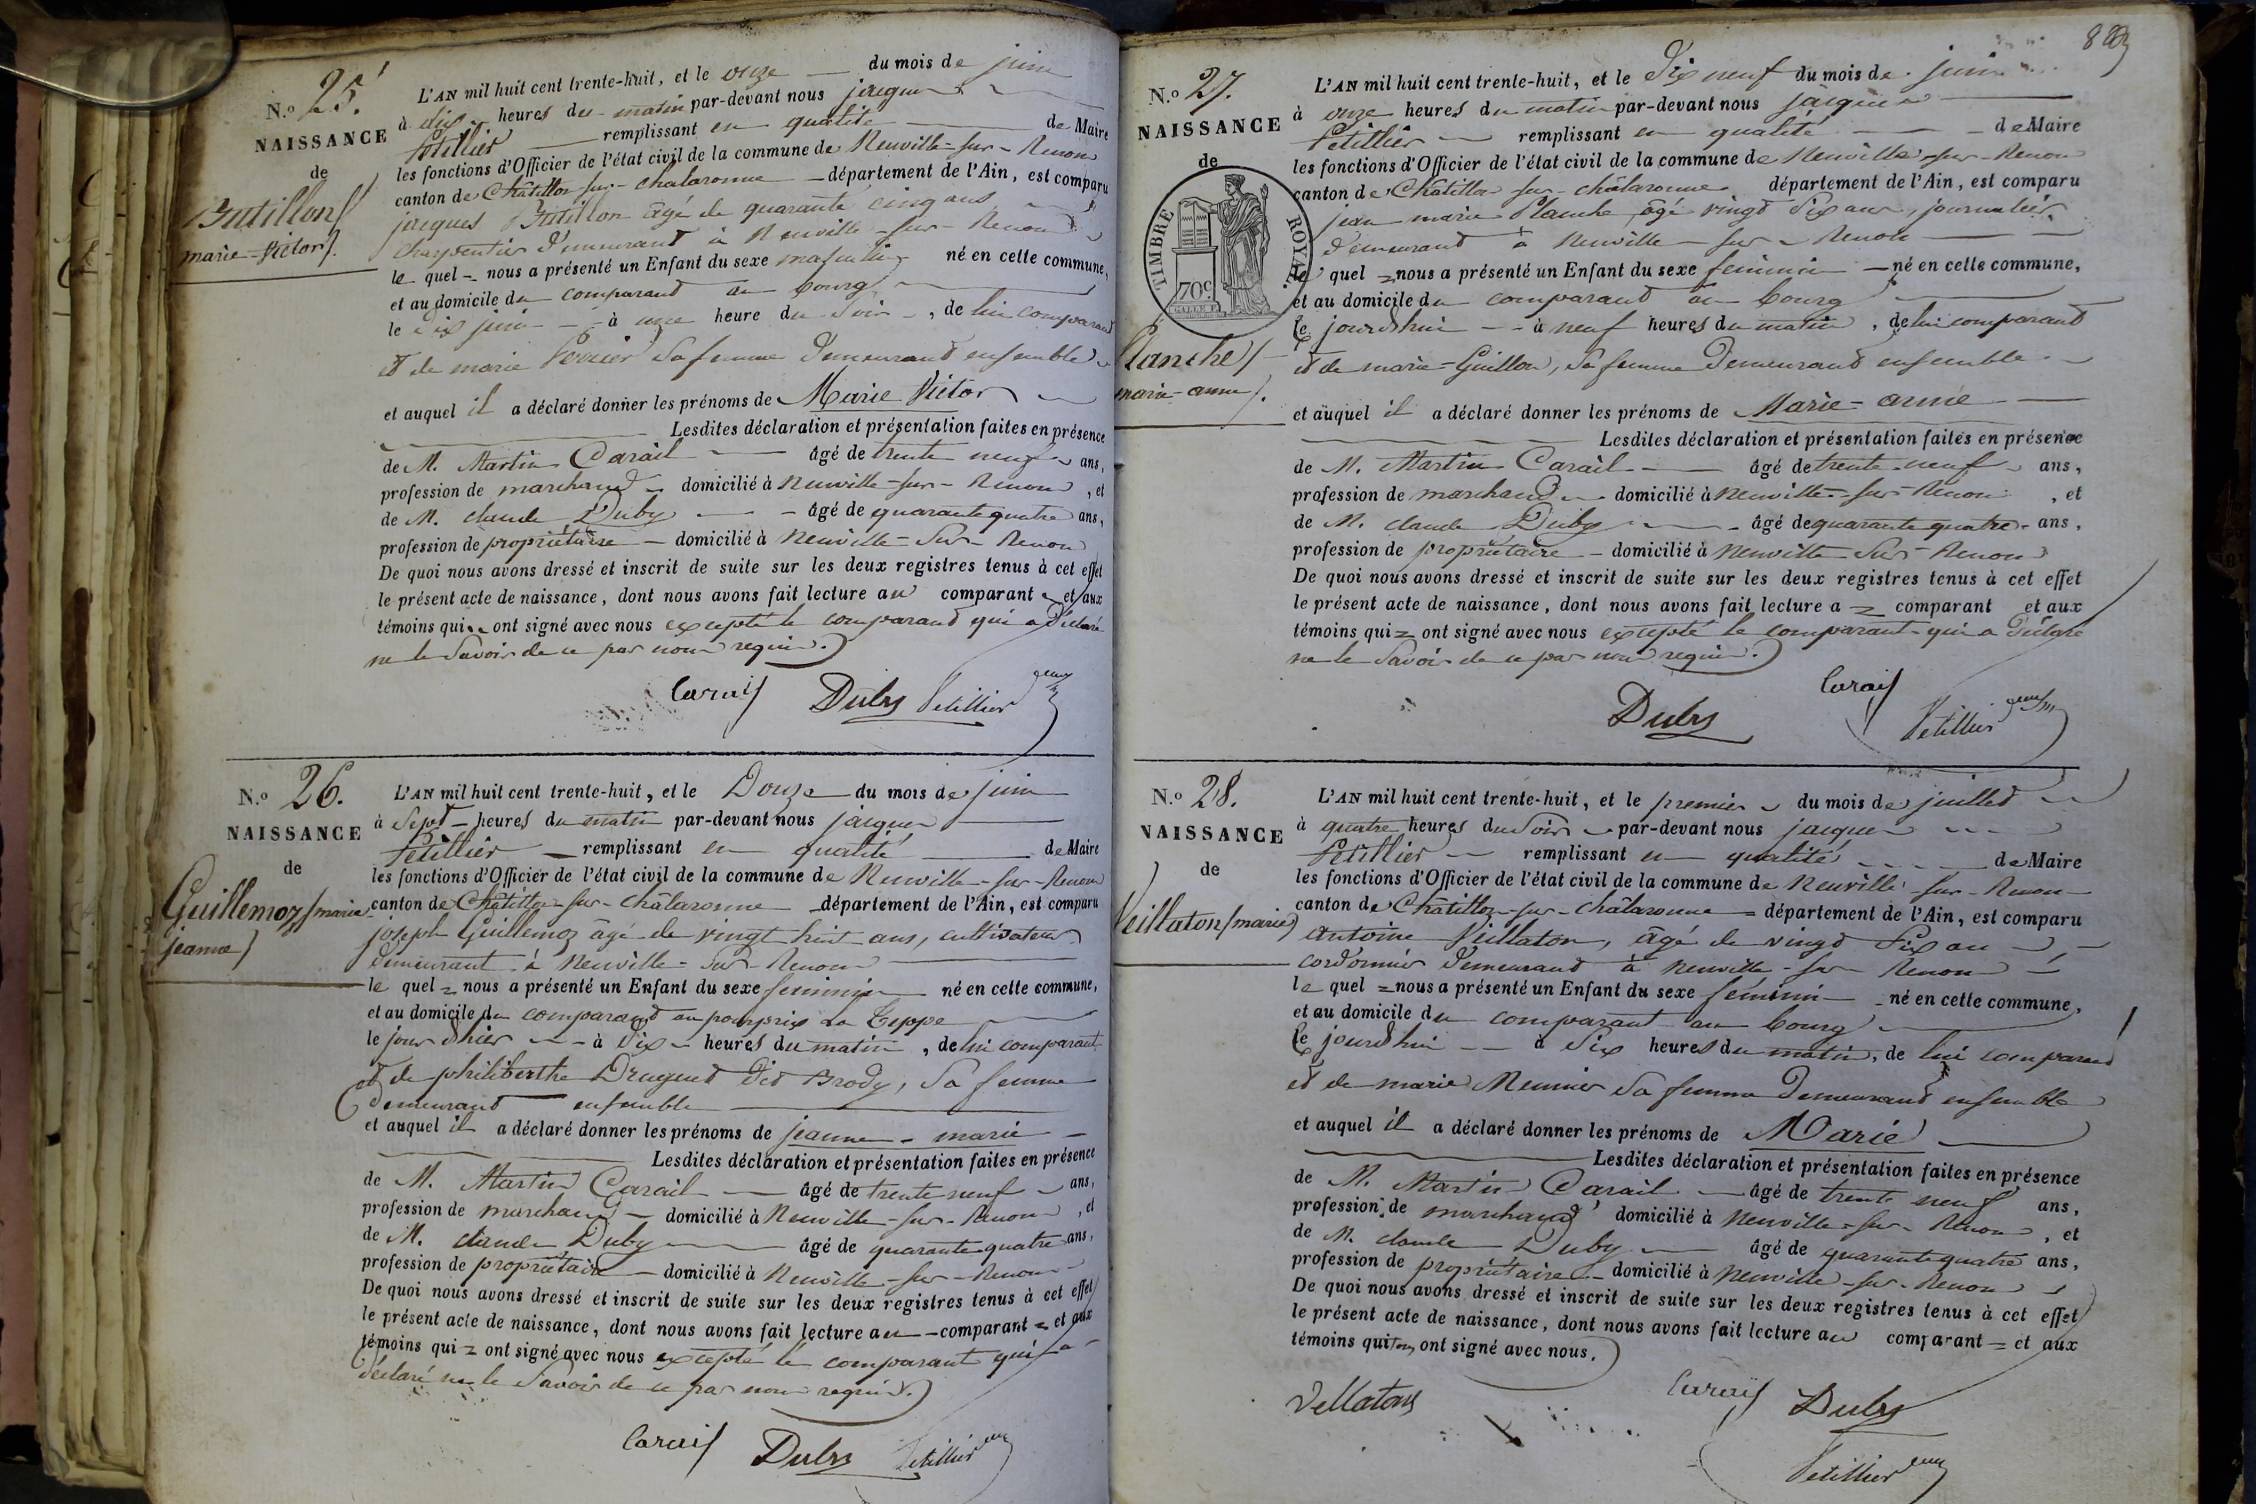 N.o 25.
NAISSANCE
de
Butillon
marie-Victor
L'AN mil huit cent trente-huit, et le onze du mois de juin
à dix heures du matin par-devant nous jacques
Petillier remplissant en qualité de Maire
les fonctions d'Officier de l'état civil de la commune de Neuville-sur-Renon
canton de Châtillon-sur-chalaronne département de l'Ain, est comparu
jacques Butillon âgé de quarante cinq ans
charpentier demeurant à Neuville-sur-Renon
le quel nous a présenté un Enfant du sexe masculin né en cette commune,
et au domicile du comparant au bourg
le dix juin à une heure du soir, de lui comparant
et de marie Perrier sa femme demeurant ensemble
et auquel il a déclaré donner les prénoms de Marie Victor
Lesdites déclaration et présentation faites en présence
de M. Martin Carail âgé de trente neuf ans,
profession de marchand domicilié à Neuville-sur-Renon, et
de M. claude Duby âgé de quarante quatre ans,
profession de propriétaire domicilié à Neuville-sur-Renon
De quoi nous avons dressé et inscrit de suite sur les deux registres tenus à cet effet
le présent acte de naissance, dont nous avons fait lecture au comparant et aux
témoins qui ont signé avec nous excepté le comparand qui a déclaré
ne le savoir de ce par nous requis.
Carail Duby Petillier
N.o 26.
NAISSANCE
de
Guillemoz marie
jeanne
L'AN mil huit cent trente-huit, et le Douze du mois de juin
à sept heures du matin par-devant nous jacques
Petillier remplissant en qualité de Maire
les fonctions d'Officier de l'état civil de la commune de Neuville-sur-Renon
canton de Châtillon-sur-châlaronne département de l'Ain, est comparu
joseph Guillemoz âgé de vingt huit ans, cultivateur
demeurant à Neuville-sur-Renon
le quel nous a présenté un Enfant du sexe feminin né en cette commune,
et au domicile du comparand au pourpris La Teppe
le jour d'hier à dix heures du matin, de lui comparant
et de philiberthe Druguet dit Brody, sa femme
demeurand ensemble
et auquel il a déclaré donner les prénoms de jeanne-marie
Lesdites déclaration et présentation faites en présence
de M. Martin Carail âgé de trente neuf ans,
profession de marchand domicilié à Neuville-sur-Renon, et
de M. claude Duby âgé de quarante quatre ans,
profession de propriétaire domicilié à Neuville-sur-Renon
De quoi nous avons dressé et inscrit de suite sur les deux registres tenus à cet effet
le présent acte de naissance, dont nous avons fait lecture au comparant et aux
témoins qui ont signé avec nous excepté le comparant qui a
déclaré ne le savoir de ce par nous requis.
Carail Duby Petillier
N.o 27.
NAISSANCE
de
TIMBRE ROYAL.
70c
Planche
marie-anne
L'AN mil huit cent trente-huit, et le Dix neuf du mois de juin
à onze heures du matin par-devant nous jacques
Petillier remplissant en qualité de Maire
les fonctions d'Officier de l'état civil de la commune de Neuville-sur-Renon
canton de Châtillon-sur-châlaronne département de l'Ain, est comparu
jean marie Planche âgé vingt six ans, journalier
demeurant à Neuville-sur-Renon
le quel nous a présenté un Enfant du sexe feminin né en cette commune,
et au domicile du comparand au bourg
le jourd'hui à neuf heures du matin, de lui comparant
et de marie-Guillon, sa femme demeurand ensemble
et auquel il a déclaré donner les prénoms de Marie-anne
Lesdites déclaration et présentation faites en présence
de M. Martin Carail âgé de trente neuf ans,
profession de marchand domicilié à Neuville-sur-Renon, et
de M. claude Duby âgé de quarante quatre ans,
profession de propriétaire domicilié à Neuville-sur-Renon
De quoi nous avons dressé et inscrit de suite sur les deux registres tenus à cet effet
le présent acte de naissance, dont nous avons fait lecture a comparant et aux
témoins qui ont signé avec nous excepté le comparant qui a déclaré
ne le savoir de ce par nous requis.
Duby Carail Petillier
N.o 28.
NAISSANCE
de
Veillaton marie
L'AN mil huit cent trente-huit, et le premier du mois de juillet
à quatre heures du soir par-devant nous jacques
Petillier remplissant en qualité de Maire
les fonctions d'Officier de l'état civil de la commune de Neuville-sur-Renon
canton de Châtillon-sur-châlaronne département de l'Ain, est comparu
antoine Veillaton, âgé de vingt six ans
cordonnier demeurand à Neuville-sur-Renon
le quel nous a présenté un Enfant du sexe féminin né en cette commune,
et au domicile du comparant au bourg
le jourd'hui à six heures du matin, de lui comparand
et de marie Meunier sa femme demeurand ensemble
et auquel il a déclaré donner les prénoms de Marie
Lesdites déclaration et présentation faites en présence
de M. Martin Carail âgé de trente neuf ans,
profession de marchand domicilié à Neuville-sur-Renon, et
de M. claude Duby âgé de quarante quatre ans,
profession de propriétaire domicilié à Neuville-sur-Renon
De quoi nous avons dressé et inscrit de suite sur les deux registres tenus à cet effet
le présent acte de naissance, dont nous avons fait lecture au comparant et aux
témoins qui tous ont signé avec nous.
Vellaton Carail Duby
Petillier